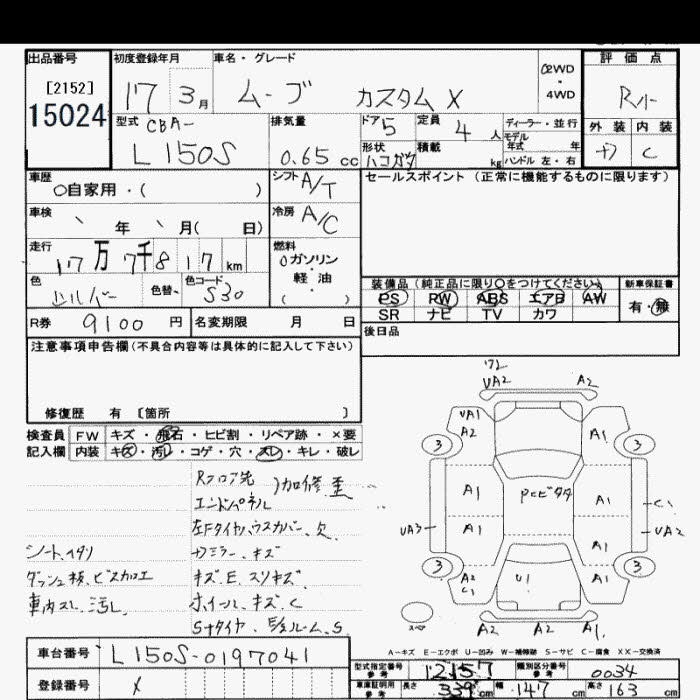 出品番号
[2152]
15024
初度登録年月
17 3月
車名・グレード
ムーブ カスタム X
2WD
・
4WD
評価点
R
外装 内装
C
型式 CBA-
L150S
排気量
0.65 cc
ドア 5
定員 4 人
形状
ハコガタ
積載 kg
ディーラー・並行
モデル
年式 年
ハンドル 左・右
車歴
自家用・( )
シフト A/T
車検
年 月( 日)
冷房 A/C
走行
17万 7千 8 1 7 km
燃料
ガソリン
・
軽油
( )
色
シルバー
色替
色コード
S30
セールスポイント (正常に機能するものに限ります)
装備品 (純正品に限り○をつけてください)
PS PW ABS エアB AW
SR ナビ TV カワ
新車保証書
有・無
後日品
R券 9100 円
名変期限 月 日
注意事項申告欄(不具合内容等は具体的に記入して下さい)
修復歴 有 〔箇所 〕
検査員
記入欄
FW キズ・飛石・ヒビ割・リペア跡・×要
内装 キズ・汚レ・コゲ・穴・スレ・キレ・破レ
Rフロア先
エンドパネル
加修歴
左Fタイヤハウスカバー、欠
ミラー、キズ
キズ、E、スリキズ
ホイール、キズ、C
シート、ヘタリ
ダッシュ板、ビス加工
車内スレ、汚レ
UA2 A2
UA1
A2
A1
3 3
A1
A1
A1
A1
UA3
C1
UA2
3 3
A2
C1
U1
A1
A2 A2 A2
スペア
A-キズ E-エクボ U-凹み W-補修跡 S-サビ C-腐食 XX-交換済
車台番号 L150S-0197041
登録番号
型式指定番号
参考
12157
類別区分番号
参考
0034
車庫証明用
参考
長さ 339 cm
幅 147 cm
高さ 163 cm